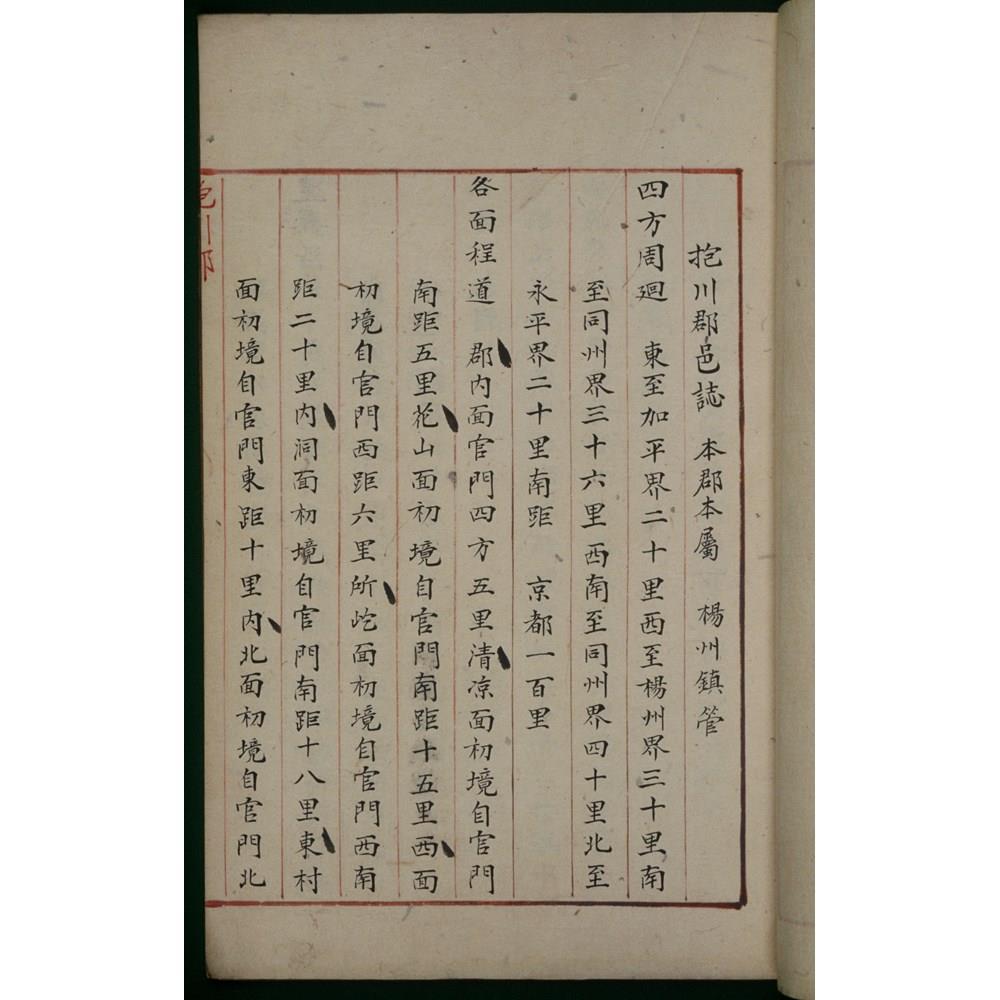 抱川郡邑誌 本郡本屬 楊州鎮管
四方周廻 東至加平界二十里西至楊州界三十里南
至同州界三十六里西南至同州界四十里北至
永平界二十里南距 京都一百里
各面程道 郡內面官門四方五里清凉面初境自官門
南距五里花山面初境自官門南距十五里西面
初境自官門西距六里所屹面初境自官門西南
距二十里內洞面初境自官門南距十八里東村
面初境自官門東距十里內北面初境自官門北